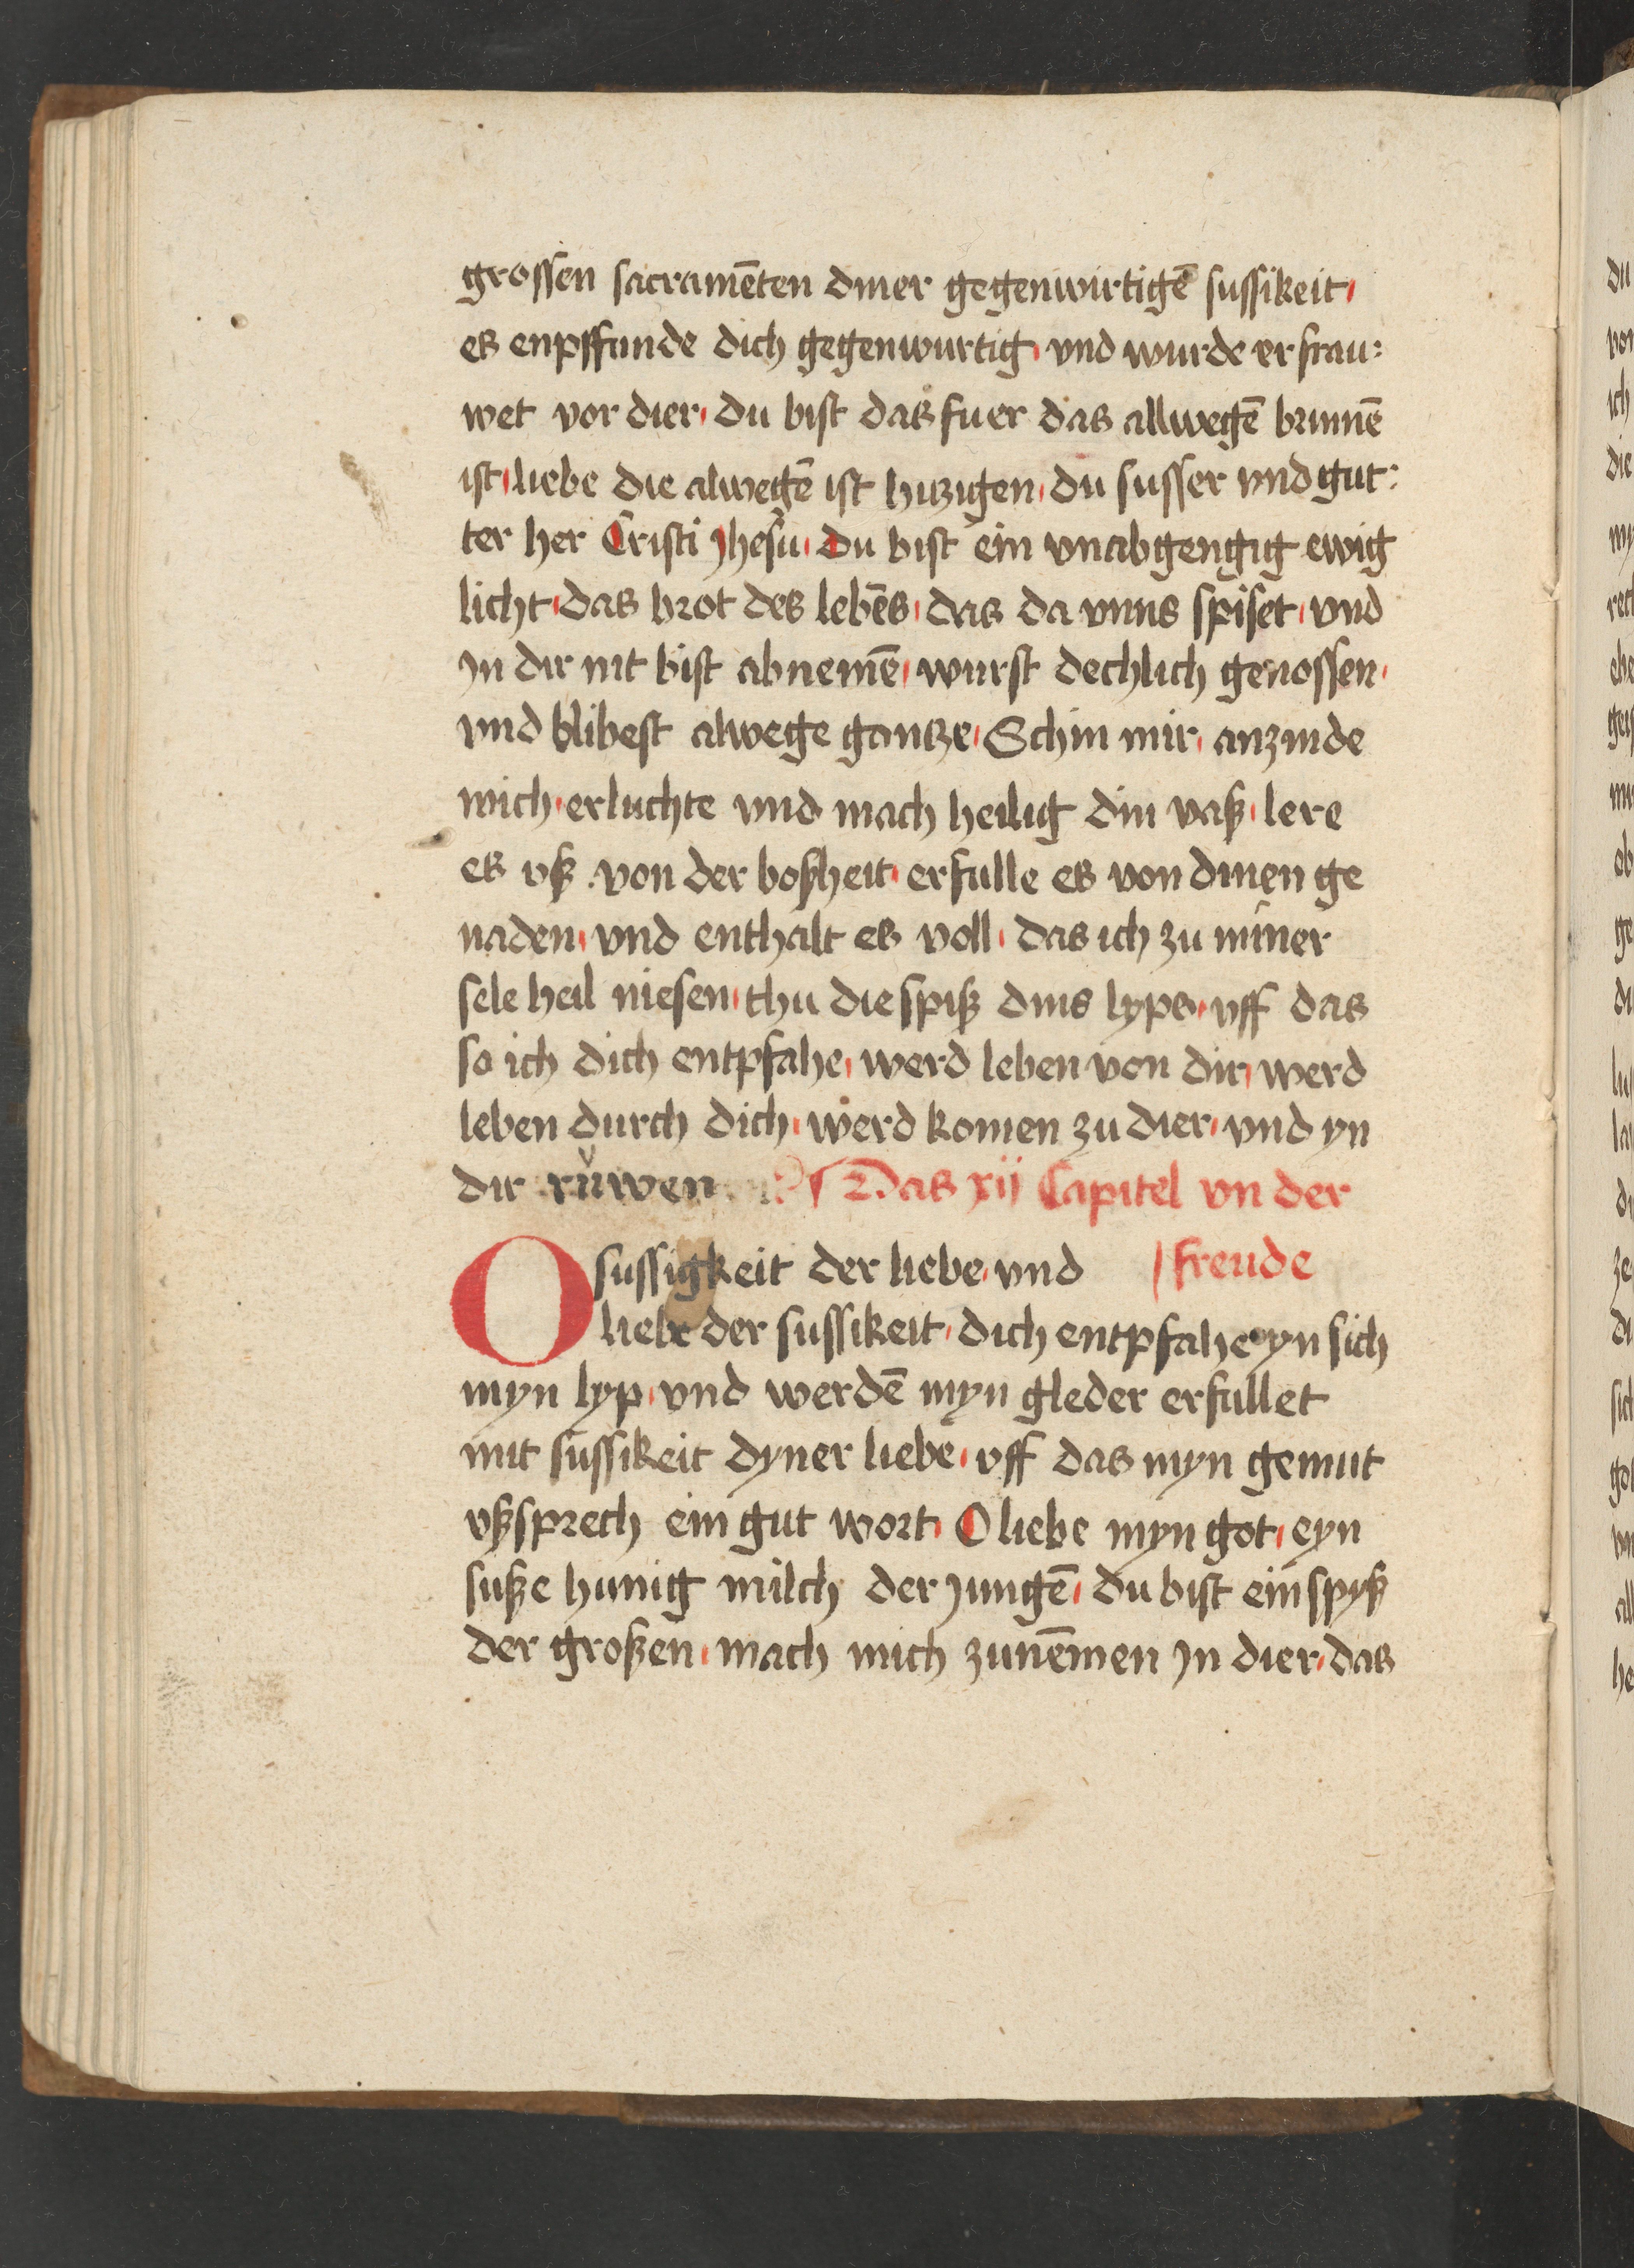 grossen sacramēten diner gegenwirtigē sussikeit
es enpffinde dich gegenwurtig vnd wurde erfrau:
wet vor dier du bist das fuer das allwegē brinnē
ist liebe die alwegē ist hitzigen du susser vnd gut:
ter her Cristi Jhesu du bist ein vnabgengig ewig
licht das brot des lebēs das da vnns spiset vnd
in dir nit bist abnemē wurst dechlich genossen
vnd blibest alwege gantze Schin mir anzinde
mich erluchte vnd mach heilig din vaß lere
es vß von der boßheit erfulle es von dinen ge
naden vnd enthalt es voll das ich zu miner
sele heil niesen thu die spiß dins lyps vff das
so ich dich entpfahe werd leben von dir werd
leben durch dich werd komen zu dier vnd yn
dir rŭwen Das xij Capitel vn der
O sussigkeit der liebe vnd freude
liebe der sussikeit dich entpfahe yn sich
myn lyp vnd werdē myn gleder erfullet
mit sussikeit dyner liebe vff das myn gemut
vßsprech ein gut wort O liebe myn got eyn
suße hunig milch der jungē du bist ein spyß
der großen mach mich zunēmen in dier das